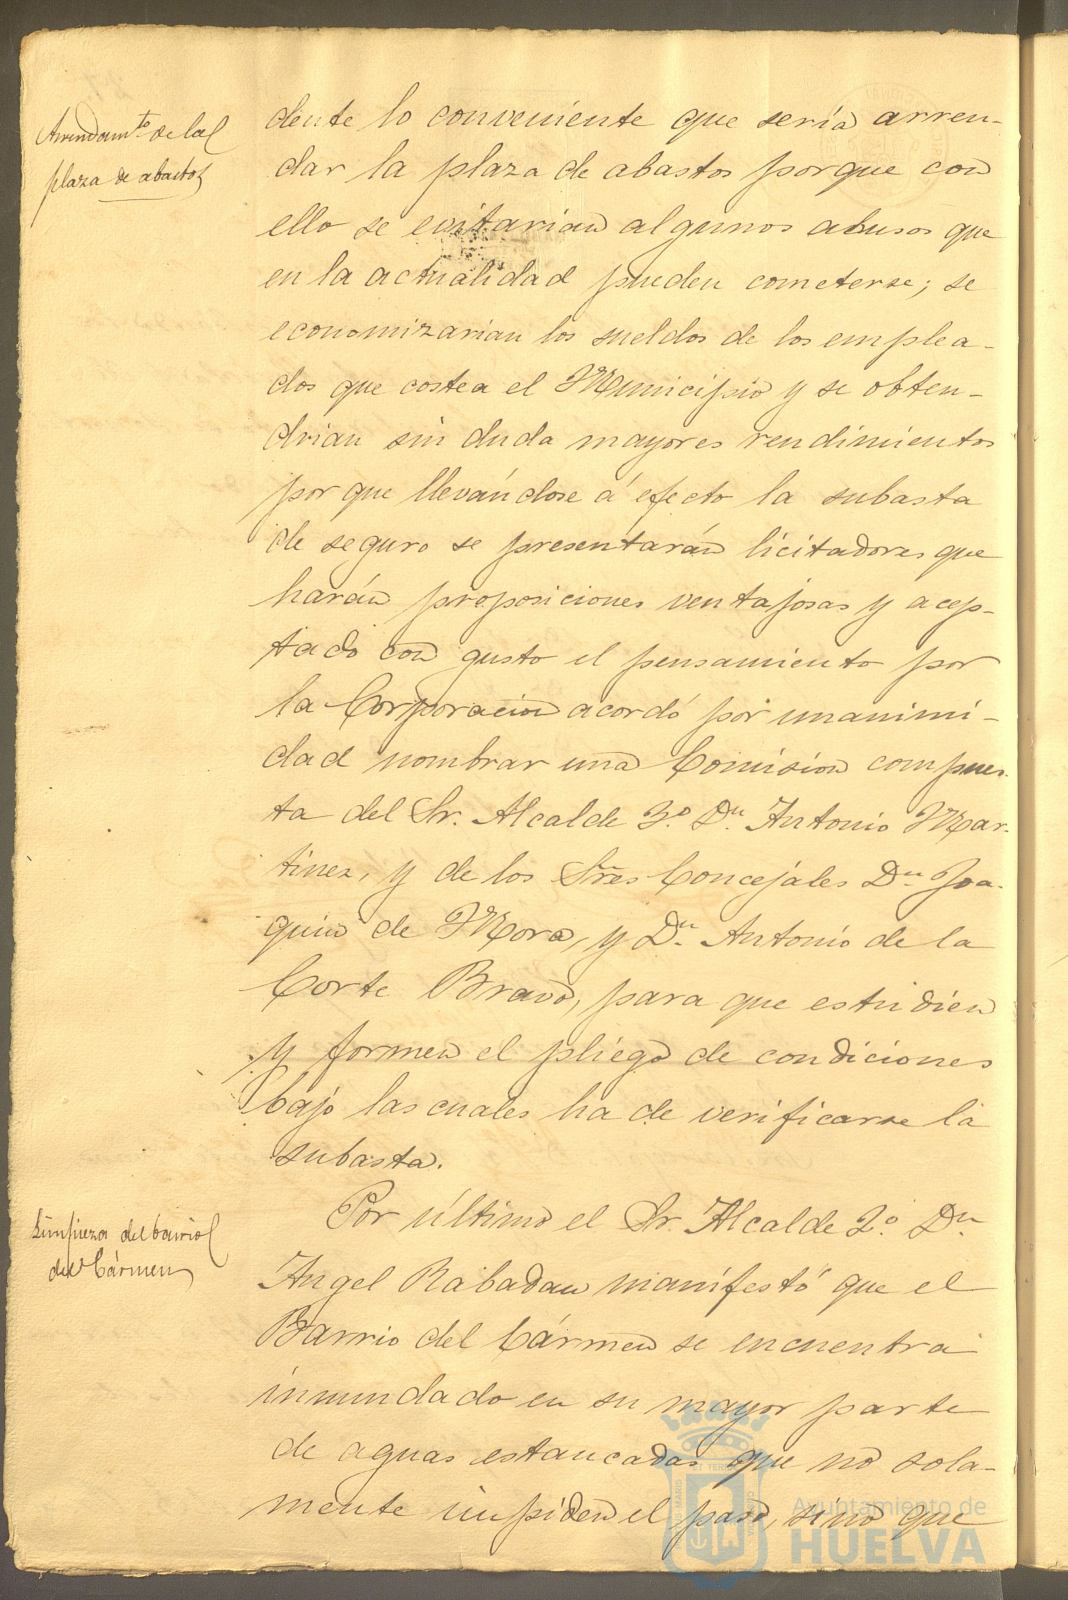 Arrendamto de la
plaza de abastos
dente lo conveniente que sería arren-
dar la plaza de abastos porque con
ello se evitarian algunos abusos que
en la actualidad pueden cometerse; se
economizarian los sueldos de los emplea-
dos que costea el Municipio y se obten-
drian sin duda mayores rendimientos
por que llevándose á efecto la subasta
de seguro se presentarán licitadores que
harán proposiciones ventajosas y acep-
tado con gusto el pensamiento por
la Corporacion acordó por unanimi-
dad nombrar una Comision compues-
ta del Sr. Alcalde 3º Dn. Antonio Mar-
tinez, y de los Sres Concejales Dn Joa-
quin de Mora, y Dn. Antonio de la
Corte Bravo, para que estudien
y formen el pliego de condiciones
bajo las cuales ha de verificarse la
subasta.
Limpieza del barrio
del Cármen
Por último el Sr. Alcalde 2º Dn
Angel Rabadan manifestó que el
Barrio del Cármen se encuentra
inundado en su mayor parte
de aguas estancadas que no sola-
mente impiden el paso, sino que
Ayuntamiento de
HUELVA